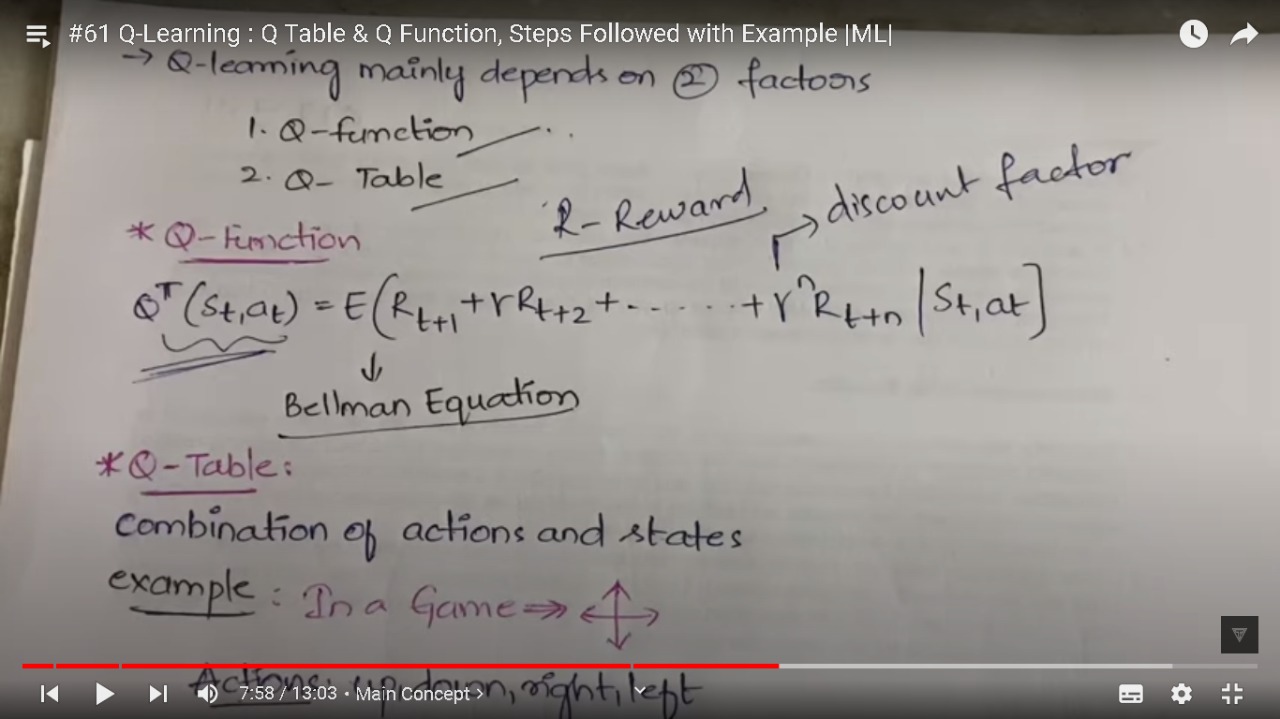 #61 Q-Learning : Q Table & Q Function, Steps Followed with Example |ML|
→ Q-learning mainly depends on ② factors
1. Q-function
2. Q- Table
R-Reward
discount factor
* Q-Function
Q^π(St,at) = E(Rt+1 + rRt+2 + ...... + r^n Rt+n | St,at]
Bellman Equation
* Q-Table:
Combination of actions and states
example: In a Game ⇒
Actions: up,down,right,left
7:58 / 13:03 • Main Concept >